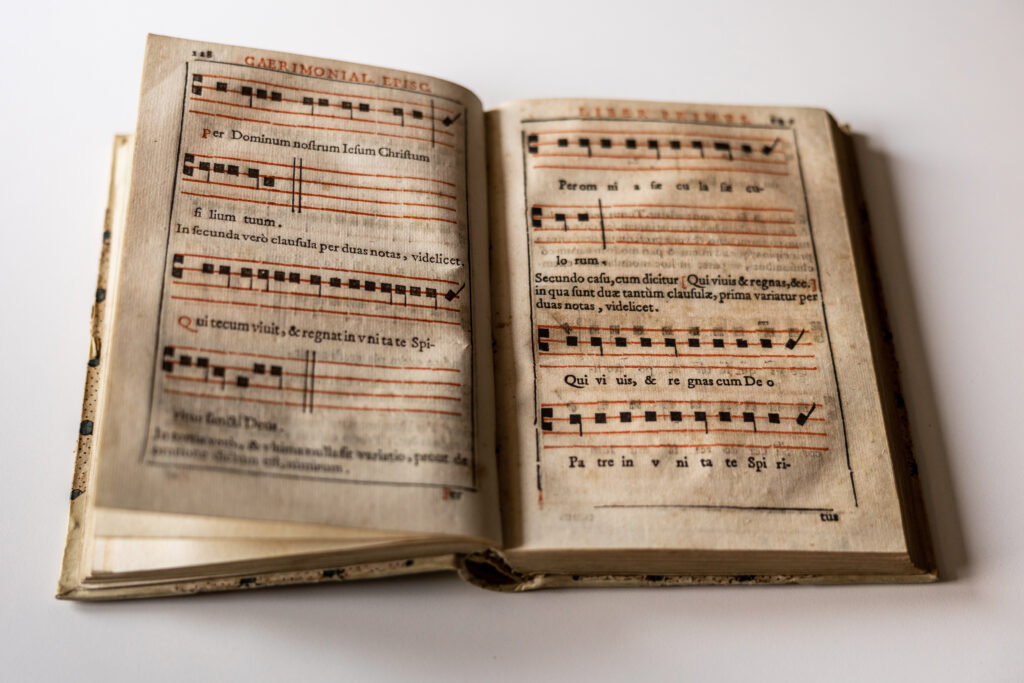 128
CAERIMONIAL. EPISC.
Per Dominum noſtrum Ieſum Chriſtum
fi lium tuum.
In ſecunda verò clauſula per duas notas, videlicet.
Qui tecum viuit, & regnat in v ni ta te Spi-
ritus ſancti Deus.
In tertia verò, &
Per
LIBER PRIMVS.
Per om ni a ſæ cu la ſæ cu-
lo rum.
Secundo caſu, cum dicitur [Qui viuis & regnas, &c.]
in qua ſunt duæ tantùm clauſulæ, prima variatur per
duas notas, videlicet.
Qui vi uis, & re gnas cum De o
Pa tre in v ni ta te Spi ri-
tus